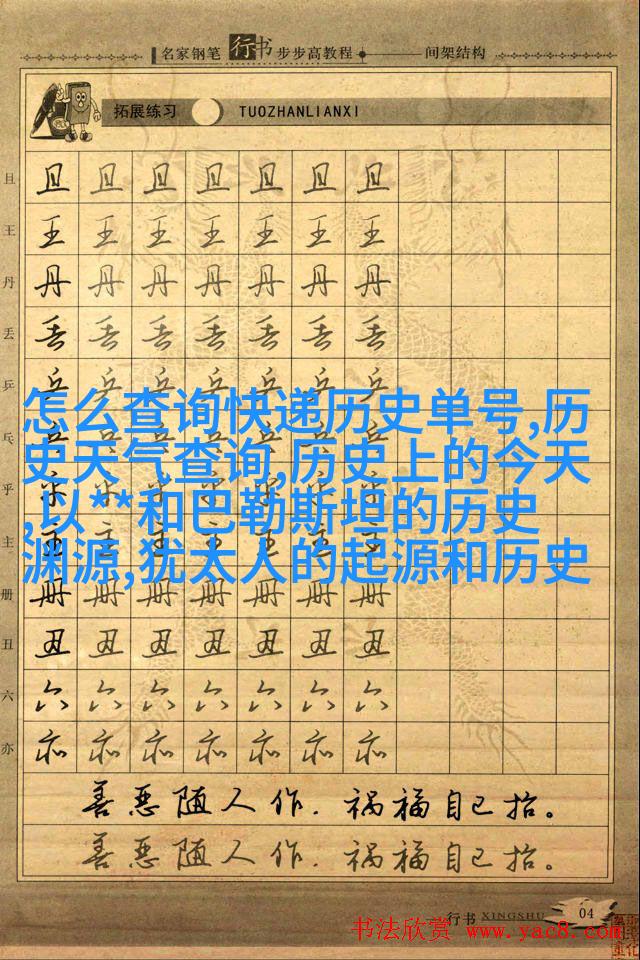 名家钢笔行书步步高教程 间架结构
拓展练习 TUOZHANLIANXI
且 且 且 且 且 且 且 且
王 王 王 王 王 王 王 王
丹 丹 丹 丹 丹 丹 丹 丹
丢 丢 丢 丢 丢 丢 丢 丢
乒 乒 乒 乒 乒 乒 乒 乒
怎么查询快递历史单号,历
乓 乓 乓 乓 乓 乓 乓 乓
史天气查询,历史上的今天
乎 乎 乎 乎 乎 乎 乎 乎
,以**和巴勒斯坦的历史
主 主 主 主 主 主 主 主
渊源,犹太人的起源和历史
册 册 册 册 册 册 册 册
丑 丑 丑 丑 丑 丑 丑 丑
六 六 六 六 六 六 六 六
亦 亦 亦 亦 亦 亦 亦 亦
善恶随人作.祸福自己招。
善恶随人作.祸福自己招。
行书 XINGSHU 04
书法欣赏 www.yac8.com